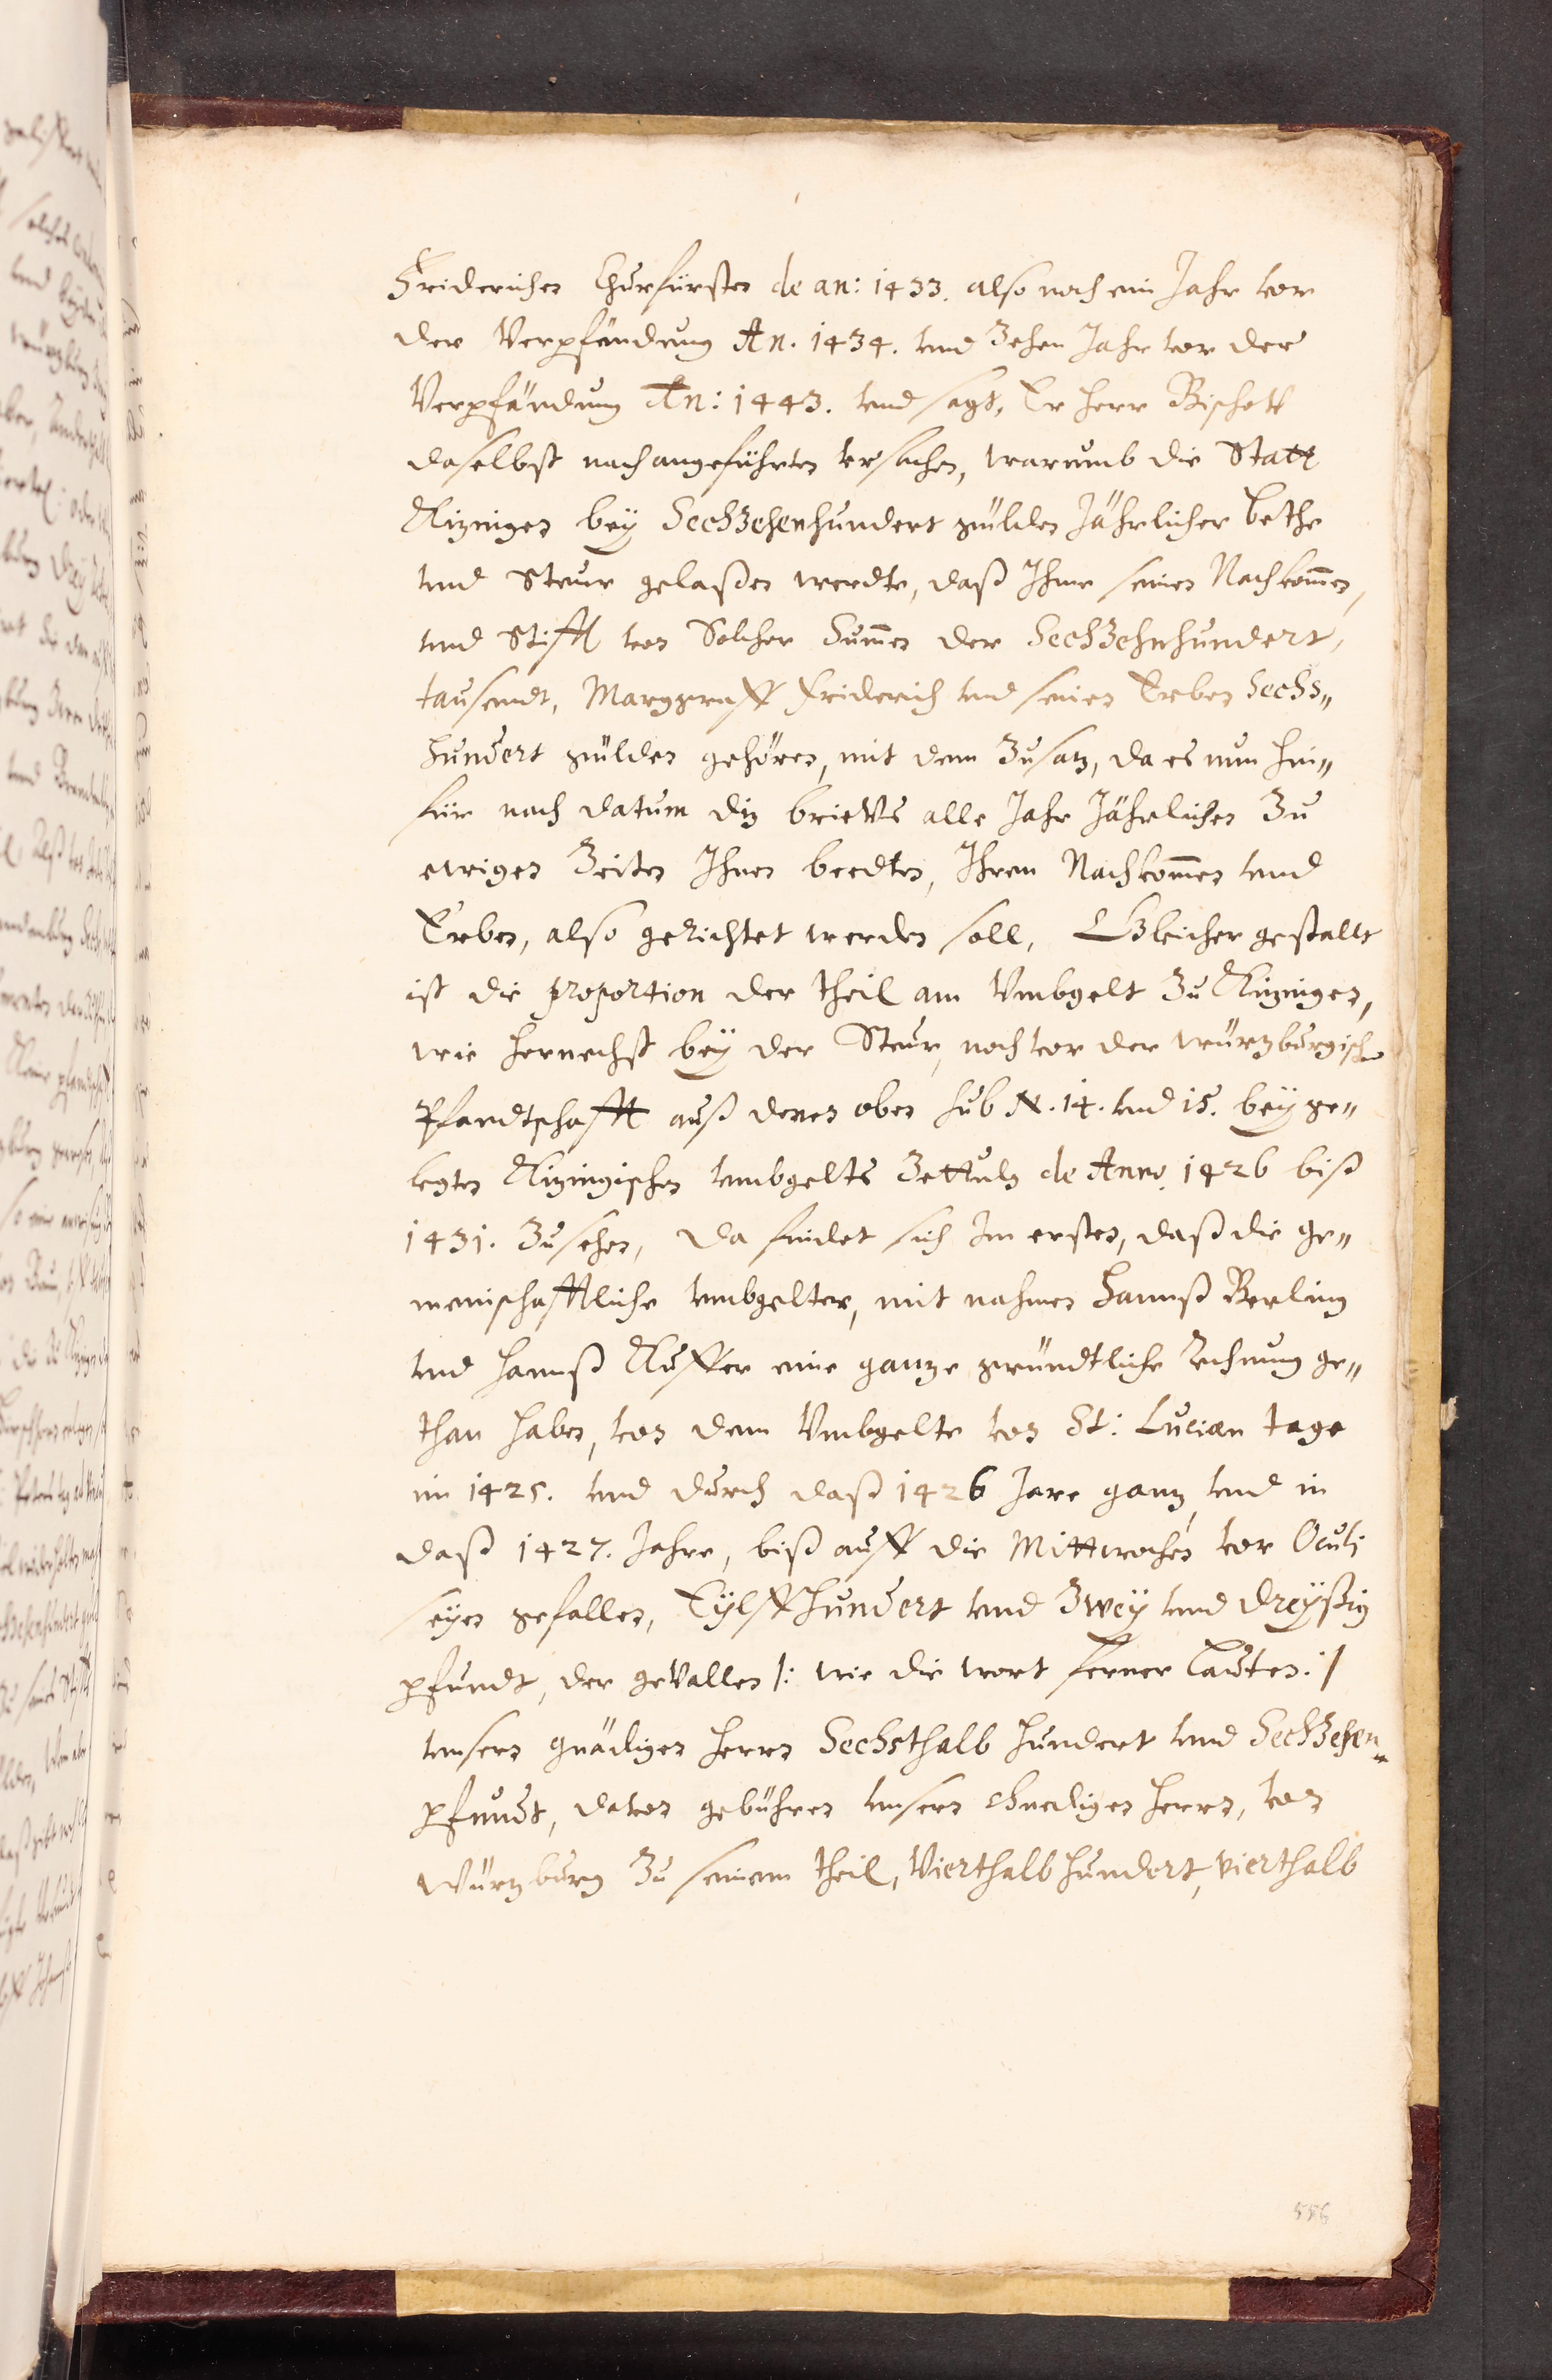 Friderichen Churfürsten de an: 1433. also noch ein Jahr vor
der Verpfändung An. 1434. vnd Zehen Jahr vor der
Verpfändung An: 1443. vnd sagt, Er Herr Bischoff
daselbst nach angeführten vrsachen, warumb die Statt
Kizingen bey SechZehenhundert gülden Jährlicher bethe
vnd Steur gelaßen werdte, daß Ihme seinen Nachkom̄en,
vnd Stifft von Solcher Sum̄en der SechZehnhundert,
tausendt, Marggraff Friderich vnd seinen Erben Sechs„
hundert gülden gehören, mit dem Zusatz, da es nun hin„
für nach datum diz brieVs alle Jahr Jährlichen Zu
ewigen Zeiten Ihnen beedten, Ihren Nachkom̄en vnd
Erben, also gerichtet werden soll, Gleicher gestallt
ist die proportion der theil am Vmbgelt Zu Kizingen,
wie hernechst bey der Steur, noch vor der würtzburgischen
Pfandtschafft auß denen oben sub N. 14. vnd 15. beyge„
legten Kizingischen vmbgelts Zettuln de Anno. 1426 biß
1431. Zusehen, da findet sich Im ersten, daß die ge„
meinschafftliche vmbgelter, mit nahmen Hannß Berling
vnd Hannß Kuffer eine ganze gründtliche Rechnung ge„
than haben, von dem Vmbgelte von St: Lucien tage
im 1425. vnd durch daß 1426 Jare ganz vnd in
daß 1427. Jahre, biß auff die Mittwochen vor Oculi
seyen gefallen, Eylffhundert vnd Zwey vnd dreyßig
pfundt, der geVallen /: wie die wort ferner lauten :/
vnsern gnädigen Herrn Sechsthalb hundert vnd SechZehen„
pfundt, davon gebühren vnsern Gnedigen Herrn, von
Würtzburg Zu seinem theil, Vierthalbhundert, vierthalb
556